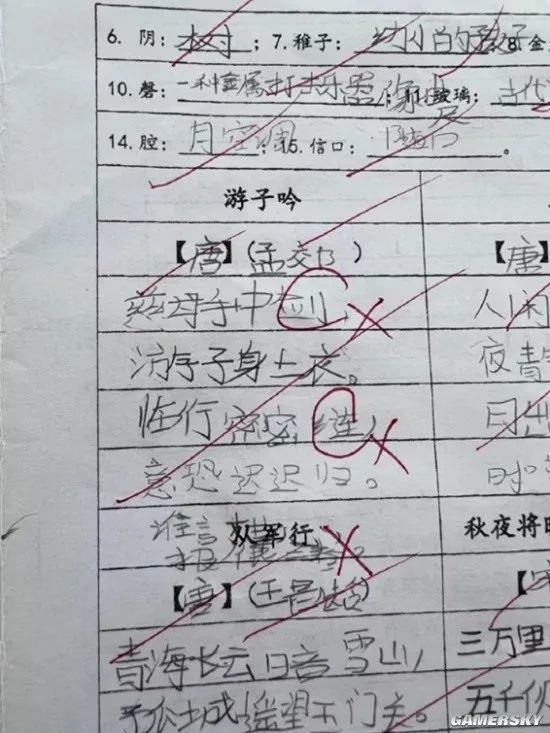 6. 阴：树；7. 稚子：幼小的孩子 8. 金
10. 磬：一种金属打击乐器 像 11. 玻璃：古代
14. 腔：月空调；15. 信口：随口。
游子吟
【唐】（孟交乃） 【唐】
慈母手中剑， 人闲
游子身上衣。 夜青
临行密密缝， 月出
意恐迟迟归。 时
谁言
从军行 秋夜将
【唐】（王昌龄）
青海长云日音雪山， 三万里
城遥望玉门关。 五千仞
GAMERSKY